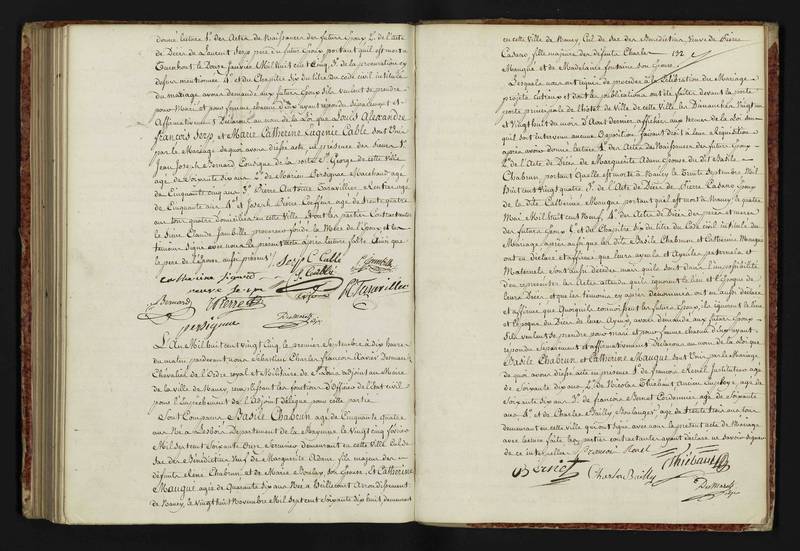 donné lecture 1°. des Actes de Naissances des futurs Epoux 2°. de l'acte
de Décès de Laurent Serzo père du futur Epoux portant qu'il est mort à
le Douze Janvier Mil huit cent Cinq, 3°. de la procuration cy
dessus mentionnée, 4°. et du Chapitre Six du titre du Code Civil intitulé
du mariage avons demandé aux futurs Epoux s'ils veulent se prendre
pour Mari et pour femme chacun d'eux ayant répondu séparément et
affirmativement Déclarons au nom de la Loi que Louis Alexandre
François Serzo et Marie Catherine Eugénie Cablé sont Unis
par le Mariage de quoi avons dressé acte en présence des Sieurs 1°.
Jean Joseph Bernard Consigne de la porte St. George de cette Ville
agé de Soixante dix ans 2°. de Marien Persignae Marechaud agé
de Cinquante cinq ans 3°. Pierre Antoine Taravillier Rentier agé
de Cinquante ans 4°. et Joseph Pierre Coiffeur agé de trente quatre
ans tous quatre domiciliés en cette Ville
le Sieur Claude Jambille procureur fondé la Mère de l'Epouse et les
témoins signé avec nous le présent acte après lecture faite Ainsi que
le père de l'Epouse aussi présent
Serzo C. Cablé
Bernard
persignae
L'An Mil huit cent vingt Cinq, le premier Septembre à dix heures
du matin pardevant nous Sébastien Charles François Xavier Desmarets
Chevalier de l'Ordre royal et Militaire de St. Louis adjoint au Maire
de la ville de Nancy, remplissant les fonctions d'Officier de l'Etat civil
pour l'empêchement de l'Adjoint délégué pour cette partie
Sont Comparus Basile Chabrun agé de Cinquante quatre
ans Né à Lesbois Département de la Mayenne le vingt cinq février
Mil sept cent Soixante Onze Terrassier demeurant en cette Ville Cul de
Sac des Bénédictins Veuf de Marguerite Adam fils majeur des
défunts René Chabrun et de Marie Boulay son Epouse, Et Catherine
Mangue agée de Quarante six ans Née à Arrondissement
de Nancy, le vingt huit Novembre Mil Sept cent Soixante dix huit demeurant
en cette Ville de Nancy Cul de Sac des Bénédictins Veuve de Pierre
Casaro, fille majeure des défunts Charles
192
Mangue et de Madelaine fontaine son Epouse.
Lesquels nous ont requis de procéder à la Célébration du Mariage
projeté entr'eux et dont les publications ont été faites devant la porte
porte principale de l'hôtel de Ville de cette Ville les Dimanches Vingt un
et Vingt huit du mois d'Aout dernier, affichées aux termes de la loi sans
qu'il soit intervenu aucune Opposition faisant droit à leur Réquisition
après avoir donné lecture 1°. des Actes de Naissances des futurs Epoux
2°. de l'Acte de Décès de Marguerite Adam Epouse du dit Basile
Chabrun portant Quelle est morte à Nancy le Trente Septembre Mil
Huit cent vingt quatre, 3°. de l'Acte de Décès de Pierre Casaro Epoux
de la dite Catherine Mangue portant quil est mort à Nancy le quatre
Mai Mil huit cent Neuf, 4°. des Actes de Décès des pères et mères
des futurs Epoux 5°. et du Chapitre Six du titre du Code civil intitulé du
Mariage, après aussi que les dits Basile Chabrun et Catherine Mangue
ont eu déclaré et affirmé que leurs ayeuls et Ayeules paternels et
Maternels sont aussi décédés mais quils sont dans l'impossibilité
d'en représenter les Actes attendu qu'ils ignorent le lieu et l'époque de
leurs Décès et que les témoins cy après dénommés ont eu aussi déclaré
et affirmé que Quoiqu'ils connoissent les futurs Epoux, ils ignorent le lieu
et l'époque du Décès de leurs Ayeux, avons demandé aux futurs Epoux
s'ils veulent se prendre pour mari et pour femme chacun d'eux ayant
répondu séparément et affirmativement Déclarons au nom de la Loi que
Basile Chabrun et Catherine Mangue sont Unis par le Mariage
de quoi avons dressé acte en présence 1°. de françois Renel Instituteur agé
de Soixante dix ans 2°. de Nicolas Thiébaut, Ancien Employé, agé de
Soixante dix ans 3°. de françois Bernet Cordonnier agé de Soixante
ans 4°. et de Charles Bailly Boulanger agé de trente trois ans tous
demeurant en cette Ville qui ont signé avec nous le présent acte de Mariage
après lecture faite les parties contractantes ayant déclaré ne savoir signer
de ce interpellées
françois Renel
Thiebaut
Charles Bailly